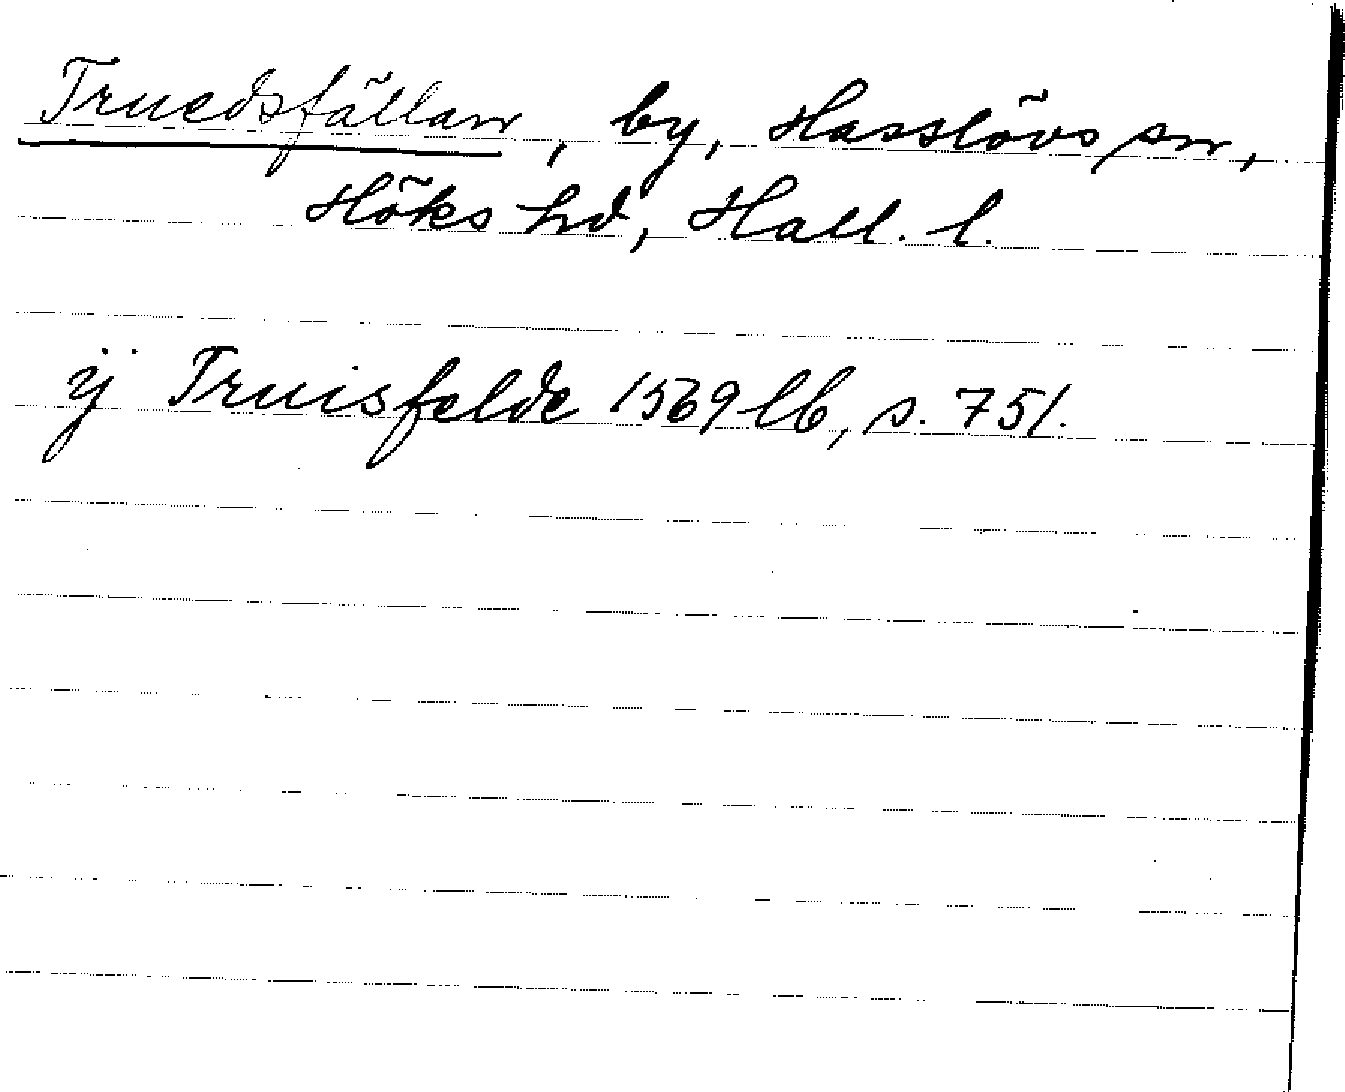 Truedsfällan, by, Hasslövs sn,
Höks hd, Hall. l.
ij Truisfelde 1569 lb, s. 751.